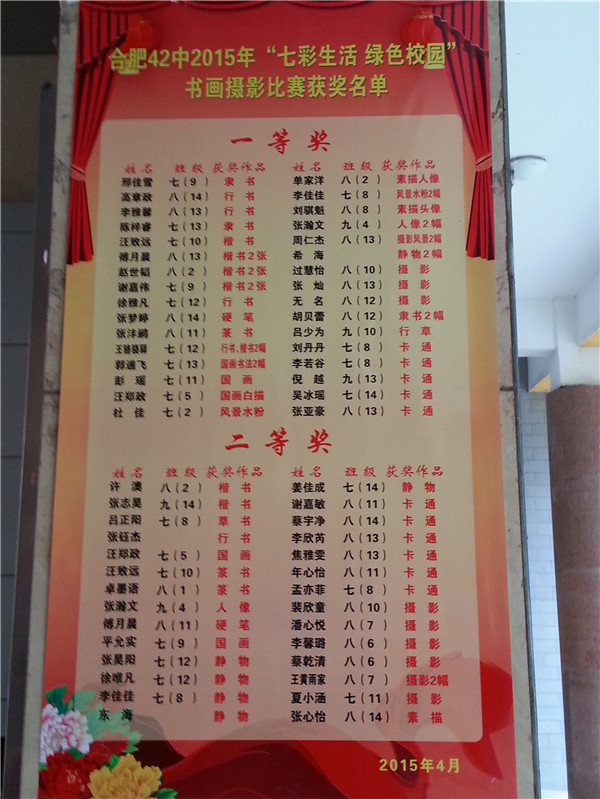 合肥42中2015年“七彩生活 绿色校园”
书画摄影比赛获奖名单
一等奖
姓名 班级 获奖作品 姓名 班级 获奖作品
邢佳雪 七(9) 隶书 单家洋 八(2) 素描人像
高章政 八(14) 行书 李佳佳 七(8) 风景水粉2幅
李雅馨 八(13) 行书 刘骐魁 八(8) 素描头像
陈梓睿 七(13) 隶书 张瀚文 九(4) 人像2幅
汪致远 七(10) 楷书 周仁杰 八(13) 摄影风景2幅
傅月晨 八(13) 楷书2张 希海 静物2幅
赵世韬 八(2) 楷书2张 过慧怡 八(10) 摄影
谢嘉伟 七(9) 楷书2张 张灿 八(13) 摄影
徐雅凡 七(12) 行书 无名 八(12) 摄影
张梦婷 八(14) 硬笔 胡贝蕾 八(12) 隶书2幅
张沣鹂 八(11) 篆书 吕少为 九(10) 行草
王骆骁驿 七(12) 行书、楷书2幅 刘丹丹 七(8) 卡通
郭遇飞 七(13) 国画书法2幅 李若谷 七(8) 卡通
彭瑶 七(11) 国画 倪越 九(13) 卡通
汪郑政 七(5) 国画白描 吴冰瑶 七(14) 卡通
杜佳 七(2) 风景水粉 张亚豪 八(13) 卡通
二等奖
姓名 班级 获奖作品 姓名 班级 获奖作品
许澳 八(2) 楷书 姜佳成 七(14) 静物
张志昊 九(14) 楷书 谢嘉敏 八(11) 卡通
吕正阳 七(8) 草书 蔡宇净 八(14) 卡通
张钰杰 行书 李欣芮 八(13) 卡通
汪郑政 七(5) 国画 焦雅雯 八(13) 卡通
汪致远 七(10) 篆书 年心怡 八(11) 卡通
卓墨语 八(1) 篆书 孟亦菲 七(8) 卡通
张瀚文 九(4) 人像 裴欣童 八(10) 摄影
傅月晨 八(11) 硬笔 潘心悦 八(7) 摄影
平允实 七(9) 国画 李馨璐 八(6) 摄影
张昊阳 七(12) 静物 蔡乾清 八(6) 摄影
徐唯凡 七(12) 静物 王黄雨家 八(7) 摄影2幅
李佳佳 七(8) 静物 夏小涵 七(11) 摄影
东海 静物 张心怡 八(14) 素描
2015年4月